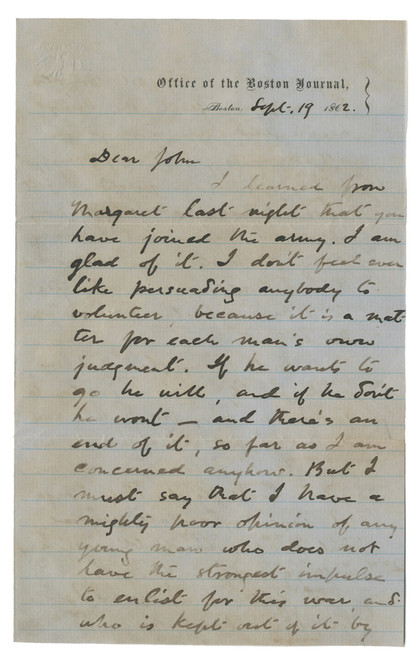 Office of the Boston Journal,
Boston, Sept. 19 1862.
Dear John
I learned from
Margaret last night that you
have joined the army. I am
glad of it. I don't feel ever
like persuading anybody to
volunteer, because it is a mat
ter for each man's own
judgment. If he wants to
go he will, and if he don't
he wont — and there's an
end of it, so far as I am
concerned anyhow. But I
must say that I have a
mighty poor opinion of any
young man who does not
have the strongest impulse
to enlist for this war and
who is kept out of it by